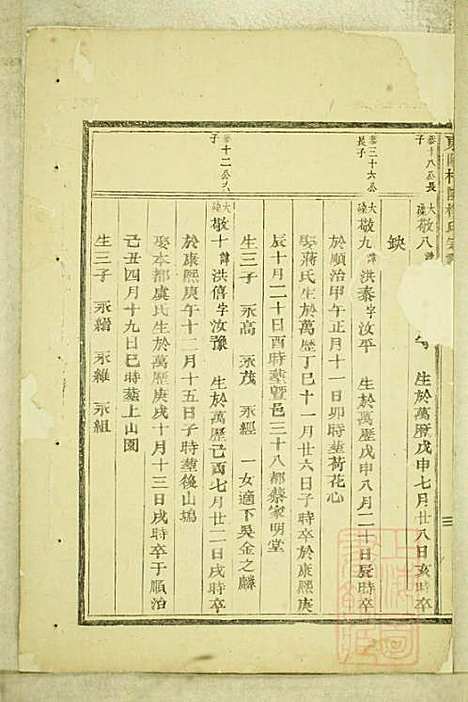 泰十八公長子
大隆敬八諱 生於萬曆戊申七月廿八日亥時卒
缺
泰三十六公長子
大隆敬九諱洪泰字汝平 生於萬歷戊申八月二十日辰時卒
於順治甲午正月十一日卯時塟荷花心
娶蔣氏生於萬歷丁巳十一月廿六日子時卒於康熙庚
辰十月二十日酉時塟暨邑三十八都蔡家明堂
生三子 永高 永茂 永經 一女適下吳金之麟
泰十二公次子
大隆敬十諱洪僖字汝豫 生於萬歷己酉七月廿二日戌時卒
於康熙庚午十二月十五日子時塟後山塢
娶本都虞氏生於萬歷庚戌十月十三日戌時卒于順治
己丑四月十九日巳時塟上山園
生三子 永縉 永維 永組